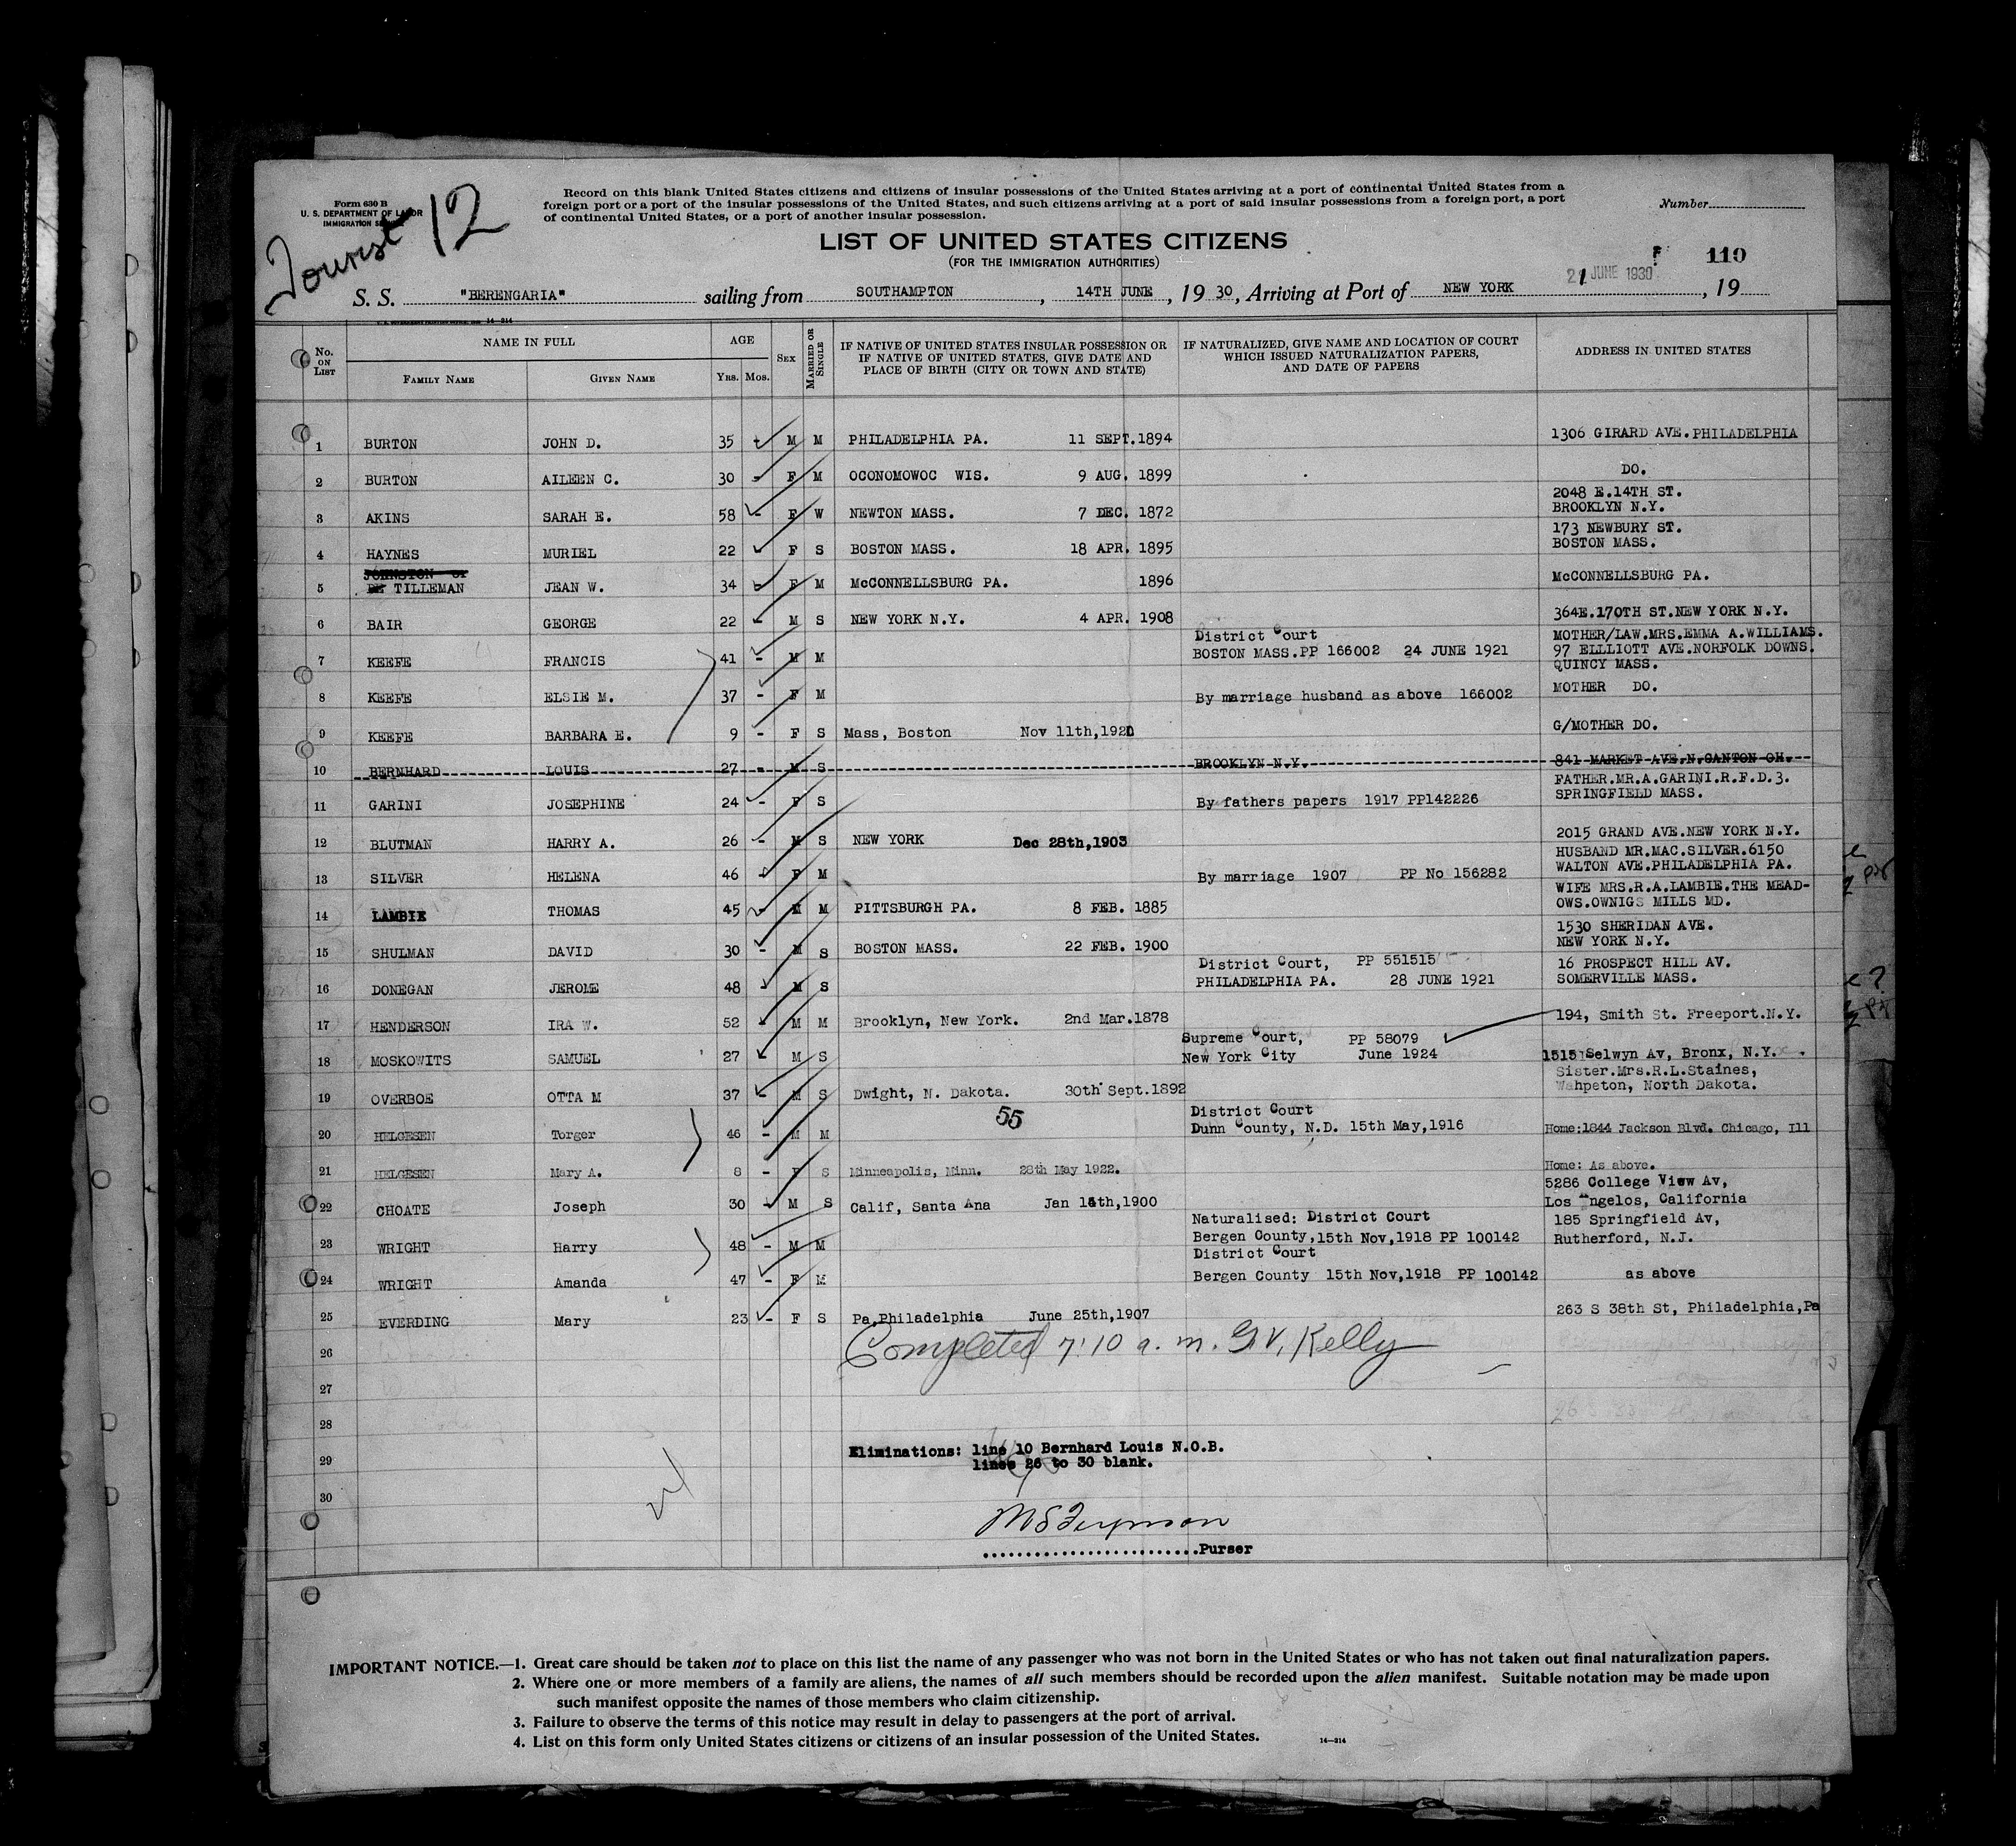 Form 630 B
U. S. DEPARTMENT OF LABOR
IMMIGRATION
Tourist 12
Record on this blank United States citizens and citizens of insular possessions of the United States arriving at a port of continental United States from a
foreign port or a port of the insular possessions of the United States, and such citizens arriving at a port of said insular possessions from a foreign port, a port
of continental United States, or a port of another insular possession.
Number
LIST OF UNITED STATES CITIZENS
(FOR THE IMMIGRATION AUTHORITIES)
110
S. S. "BERENGARIA" sailing from SOUTHAMPTON, 14TH JUNE, 19 30, Arriving at Port of NEW YORK 21 JUNE 1930, 19
No. ON LIST
NAME IN FULL
FAMILY NAME GIVEN NAME
AGE
Yrs. Mos.
SEX
MARRIED OR SINGLE
IF NATIVE OF UNITED STATES INSULAR POSSESSION OR
IF NATIVE OF UNITED STATES, GIVE DATE AND
PLACE OF BIRTH (CITY OR TOWN AND STATE)
IF NATURALIZED, GIVE NAME AND LOCATION OF COURT
WHICH ISSUED NATURALIZATION PAPERS,
AND DATE OF PAPERS
ADDRESS IN UNITED STATES
1 BURTON JOHN D. 35 - M M PHILADELPHIA PA. 11 SEPT. 1894 1306 GIRARD AVE. PHILADELPHIA
2 BURTON AILEEN C. 30 - F M OCONOMOWOC WIS. 9 AUG. 1899 DO.
2048 E.14TH ST.
3 AKINS SARAH E. 58 - F W NEWTON MASS. 7 DEC. 1872 BROOKLYN N.Y.
173 NEWBURY ST.
4 HAYNES MURIEL 22 - F S BOSTON MASS. 18 APR. 1895 BOSTON MASS.
JOHNSTON or
5 DE TILLEMAN JEAN W. 34 - F M McCONNELLSBURG PA. 1896 McCONNELLSBURG PA.
6 BAIR GEORGE 22 - M S NEW YORK N.Y. 4 APR. 1908 364E.170TH ST.NEW YORK N.Y.
District Court MOTHER/LAW.MRS.EMMA A.WILLIAMS.
7 KEEFE FRANCIS 41 - M M BOSTON MASS.PP 166002 24 JUNE 1921 97 ELLLIOTT AVE.NORFOLK DOWNS.
QUINCY MASS.
8 KEEFE ELSIE M. 37 - F M By marriage husband as above 166002 MOTHER DO.
9 KEEFE BARBARA E. 9 - F S Mass, Boston Nov 11th,1920 G/MOTHER DO.
10 BERNHARD LOUIS 27 - M S BROOKLYN N.Y. 841 MARKET AVE.N.CANTON OH.
FATHER.MR.A.GARINI.R.F.D.3.
11 GARINI JOSEPHINE 24 - F S By fathers papers 1917 PP142226 SPRINGFIELD MASS.
12 BLUTMAN HARRY A. 26 - M S NEW YORK Dec 28th,1903 2015 GRAND AVE.NEW YORK N.Y.
HUSBAND MR.MAC.SILVER.6150
13 SILVER HELENA 46 - F M By marriage 1907 PP No 156282 WALTON AVE.PHILADELPHIA PA.
WIFE MRS.R.A.LAMBIE.THE MEAD-
14 LAMBIE THOMAS 45 - M M PITTSBURGH PA. 8 FEB. 1885 OWS.OWNIGS MILLS MD.
1530 SHERIDAN AVE.
15 SHULMAN DAVID 30 - M S BOSTON MASS. 22 FEB. 1900 NEW YORK N.Y.
District Court, PP 551515 16 PROSPECT HILL AV.
16 DONEGAN JEROME 48 - M S PHILADELPHIA PA. 28 JUNE 1921 SOMERVILLE MASS.
17 HENDERSON IRA W. 52 - M M Brooklyn, New York. 2nd Mar.1878 194, Smith St. Freeport.N.Y.
Supreme Court, PP 58079
18 MOSKOWITS SAMUEL 27 - M S New York City June 1924 1515 Selwyn Av, Bronx, N.Y.
Sister.Mrs.R.L.Staines,
19 OVERBOE OTTA M 37 - M S Dwight, N. Dakota. 30th Sept.1892 Wahpeton, North Dakota.
55 District Court
20 HELGESEN Torger 46 - M M Dunn County, N.D. 15th May,1916 Home:1844 Jackson Blvd. Chicago, Ill
21 HELGESEN Mary A. 8 - F S Minneapolis, Minn. 28th May 1922. Home: As above.
5286 College View Av,
22 CHOATE Joseph 30 - M S Calif, Santa Ana Jan 18th,1900 Los Angelos, California
Naturalised: District Court 185 Springfield Av,
23 WRIGHT Harry 48 - M M Bergen County,15th Nov,1918 PP 100142 Rutherford, N.J.
District Court
24 WRIGHT Amanda 47 - F M Bergen County 15th Nov,1918 PP 100142 as above
25 EVERDING Mary 23 - F S Pa,Philadelphia June 25th,1907 263 S 38th St, Philadelphia,Pa
26 Completed 7:10 a.m. G.V. Kelly
27
28
Eliminations: line 10 Bernhard Louis N.O.B.
29 lines 26 to 30 blank.
30
Purser
IMPORTANT NOTICE.—1. Great care should be taken not to place on this list the name of any passenger who was not born in the United States or who has not taken out final naturalization papers.
2. Where one or more members of a family are aliens, the names of all such members should be recorded upon the alien manifest. Suitable notation may be made upon
such manifest opposite the names of those members who claim citizenship.
3. Failure to observe the terms of this notice may result in delay to passengers at the port of arrival.
4. List on this form only United States citizens or citizens of an insular possession of the United States.
14—314